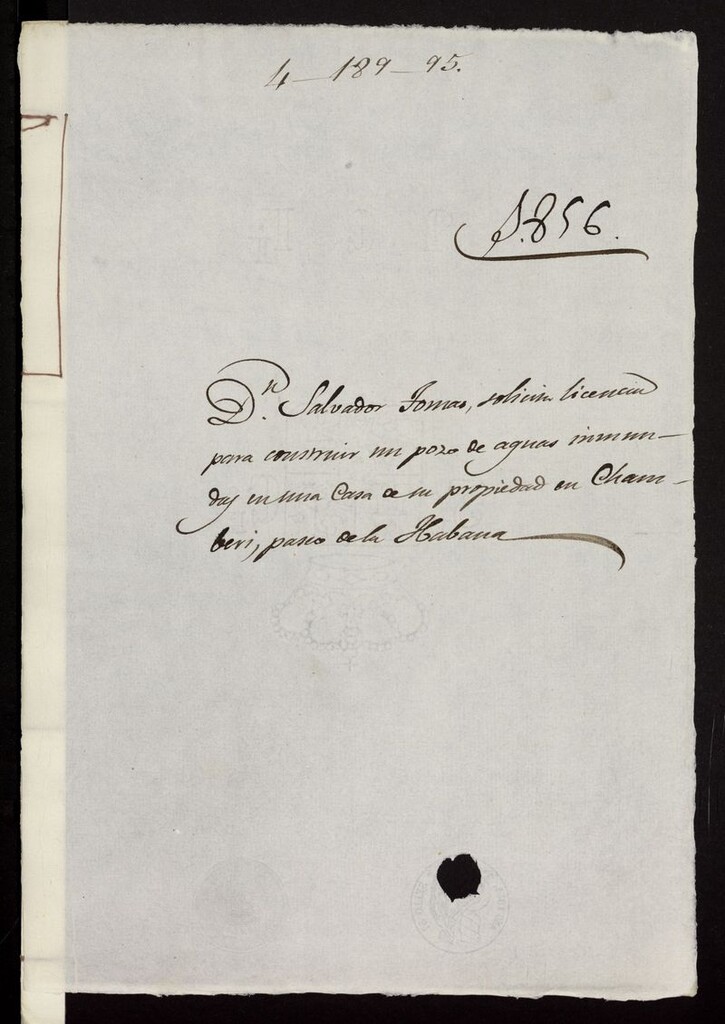 4-189-95.
1.856.
D.n Salvador Tomas, solicita licencia
para construir un pozo de aguas inmun-
das en una Casa de su propiedad en Cham-
beri, paseo de la Habana